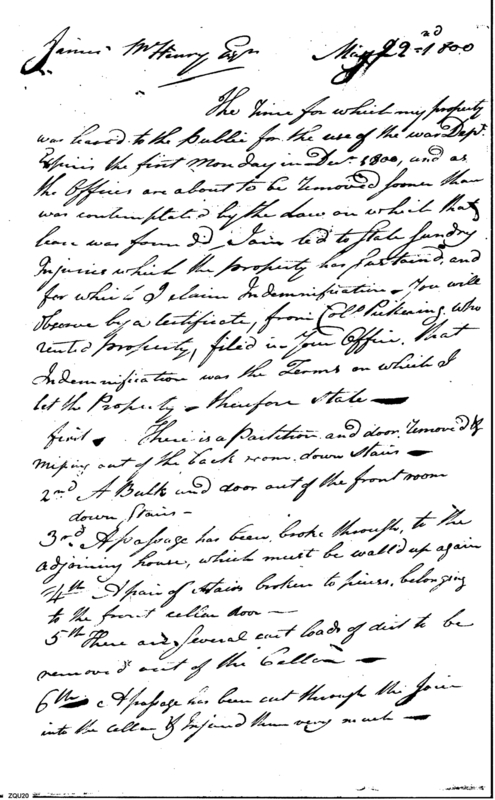 James McHenry Esqr May 22nd 1800
The Time for which my property
was leased to the Public for the use of the war Dept.
Expires the first Monday in Decr. 1800, and as
the Offices are about to be removed sooner than
was contemplated by the Law on which that
lease was found'd, I am led to state sundry
Injuries which the property has sustaind, and
for which I claim Indemnification. You will
observe by a certificate, from Coll. Pickering, who
rented property, filed in Your Office, that
Indemnification was the Terms on which I
let the Property - therefore state -
first. There is a Partition and door removed &
missing out of the back room down Stairs -
2nd A Bulk and door out of the front room
down Stairs -
3rd A passage has been broke through, to the
adjoining house, which must be walld up again
4th A pair of Stairs broken to pieces, belonging
to the front cellar door -
5th There are several cart loads of dirt to be
removed out of the Cellar -
6th A passage has been cut through the
into the cellar & Injured them very much -
ZQU20